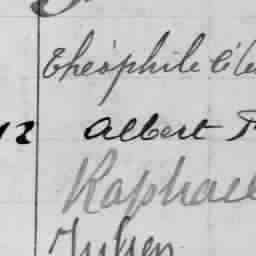 Théophile
12 Albert
Raphael
Julien